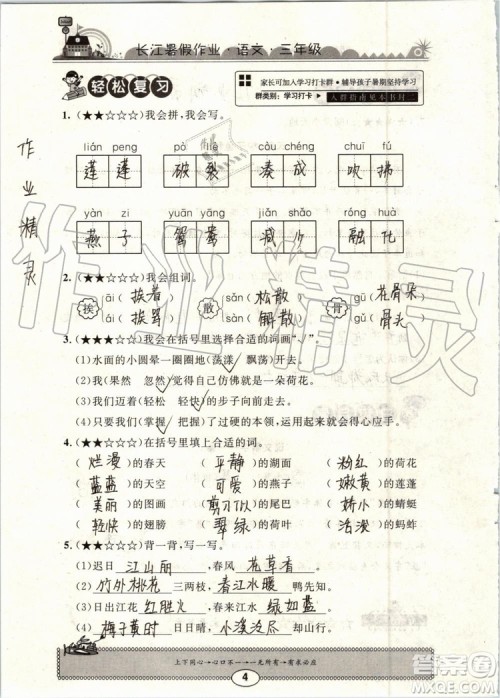 长江暑假作业·语文·三年级
轻松复习
家长可加入学习打卡群·辅导孩子暑期坚持学习
群类别：学习打卡 入群指南见本书封二
1.（★★☆☆☆）我会拼，我会写。
lián peng pò liè còu chéng chuī fú
莲蓬 破裂 凑成 吹拂
yàn zi yuān yāng jiǎn shǎo róng huà
燕子 鸳鸯 减少 融化
2.（★★☆☆☆）我会组词。
挨 āi（挨着） ái（挨骂） 散 sǎn（松散） sàn（解散） 骨 gū（花骨朵） gǔ（骨头）
3.（★★☆☆☆）我会在括号里选择合适的词画“√”。
(1)水面的小圆晕一圈圈地(荡漾√ 飘荡)开去。
(2)我(果然 忽然√)觉得自己仿佛就是一朵荷花。
(3)我们迈着(轻松 轻快√)的步子向前走去。
(4)同学们(掌握√ 把握)了过硬的本领，运用起来就会得心应手。
4.（★★☆☆☆）在括号里填上合适的词。
（烂漫）的春天 （平静）的湖面 （粉红）的荷花
（蓝蓝）的天空 （可爱）的燕子 （嫩黄）的莲蓬
（美丽）的图画 （剪刀似）的尾巴 （娇小）的蜻蜓
（轻快）的翅膀 （翠绿）的荷叶 （活泼）的蚂蚱
5.（★★☆☆☆）背一背，写一写。
(1)迟日江山丽，春风花草香。
(2)竹外桃花三两枝，春江水暖鸭先知。
(3)日出江花红胜火，春来江水绿如蓝。
(4)梅子黄时日日晴，小溪泛尽却山行。
上下同心→心口不一→一无所有→有求必应
4
作业精灵
作业精灵
答案圈
MXQE.COM